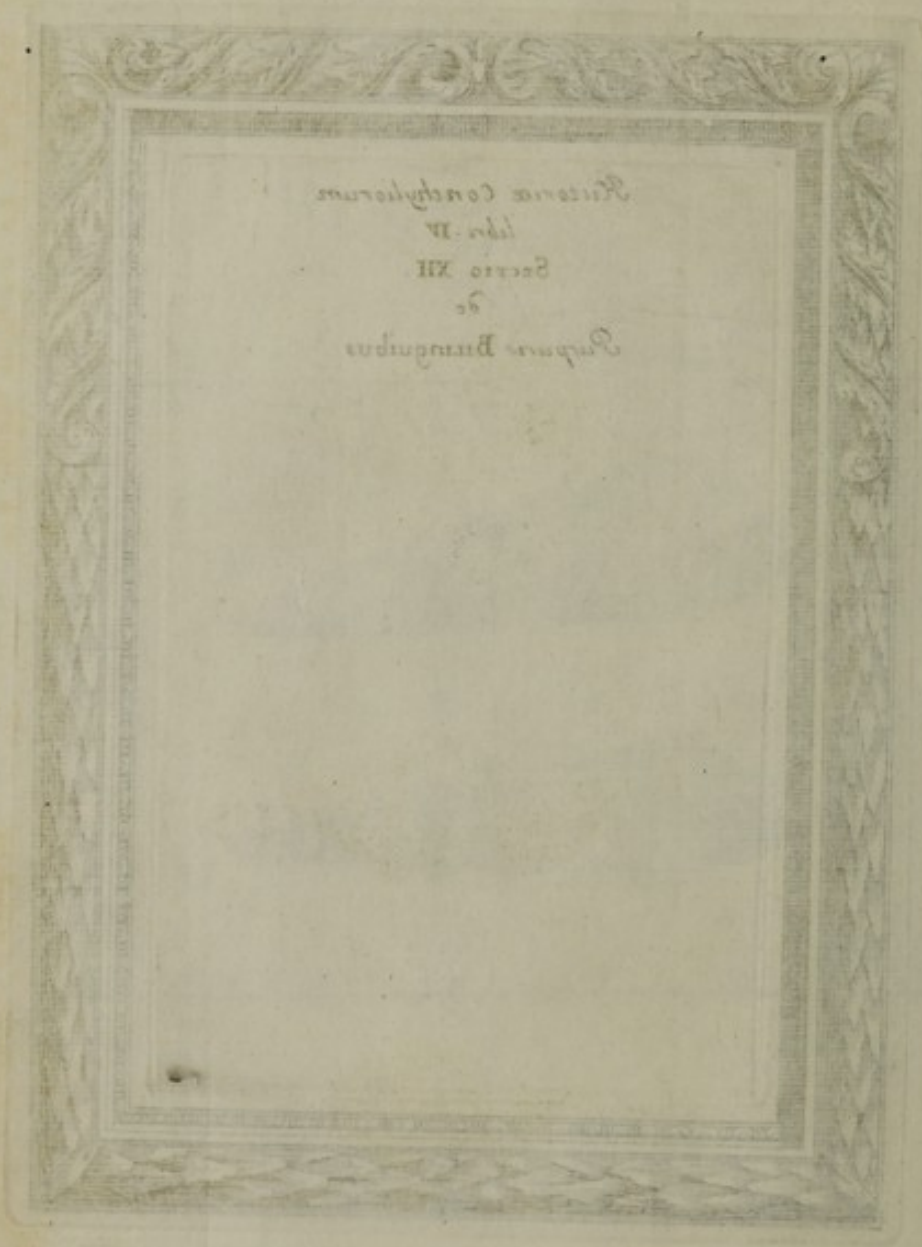 Historiæ Conchyliorum
libri · IV
Sectio XII
de
Purpuris Bilinguibus